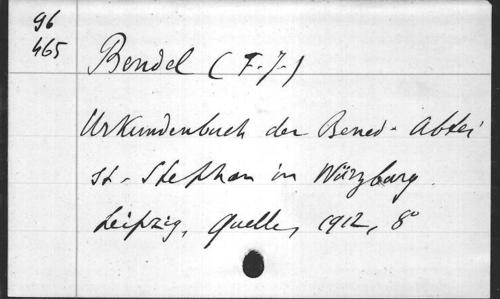 96
465
Bendel (F. J.)
Urkundenbuch der Bened. Abtei
St. Stephan in Würzburg.
Leipzig, Quelle, 1912, 8°